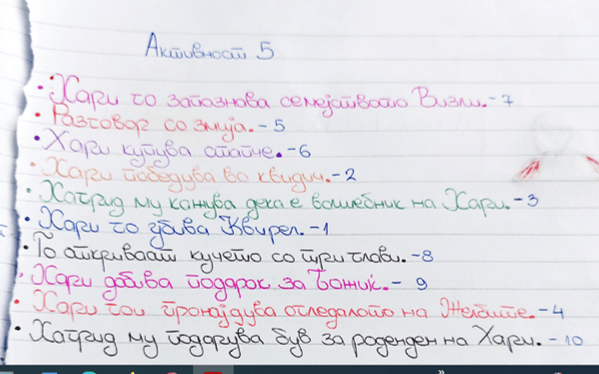 Активност 5
• Хари го запознава семејството Визли. - 7
• Разговор со змија. - 5
• Хари купува стапче. - 6
• Хари победува во квидич. - 2
• Хагрид му кажува дека е волшебник на Хари. - 3
• Хари го убива Квирел. - 1
• Го откриваат кучето со три глави. - 8
• Хари добива подарок за Божиќ. - 9
• Хари го пронајдува огледалото на Желбите. - 4
• Хагрид му подарува був за роденден на Хари. - 10